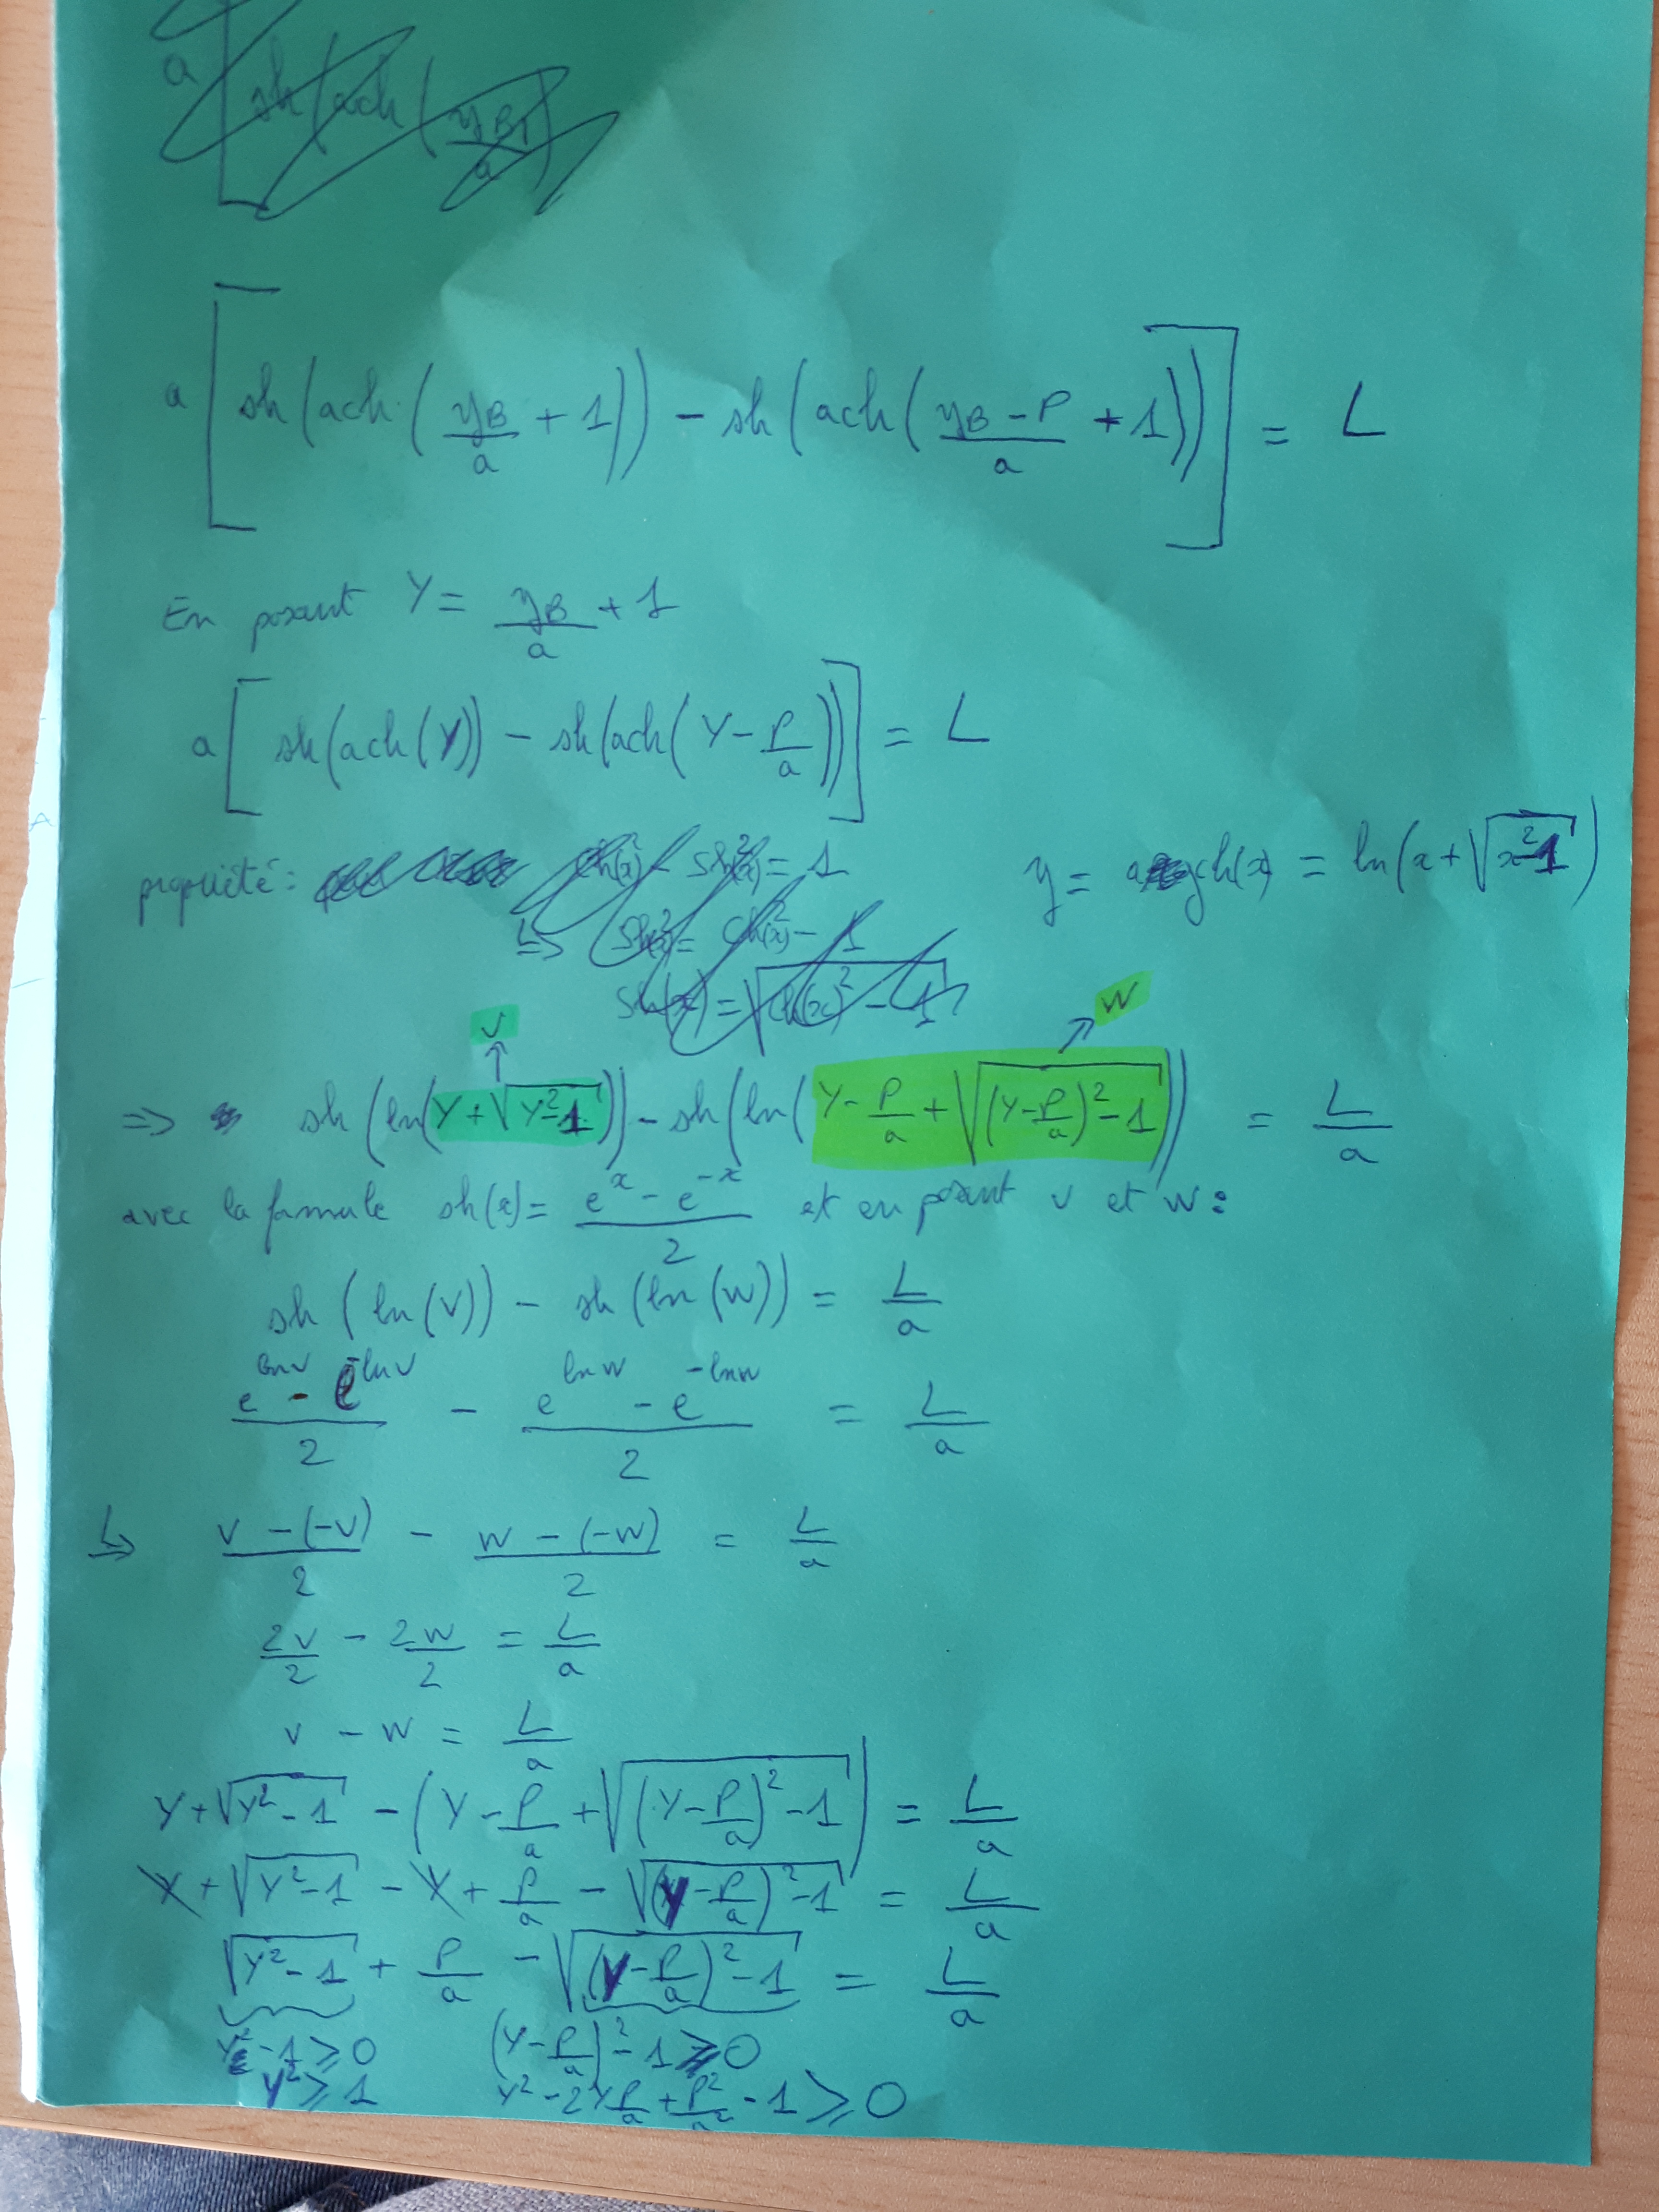 a [ sh(ach(yB+1 / a)
a [ sh(ach(yB/a + 1)) - sh(ach((yB - P)/a + 1)) ] = L
En posant Y = yB/a + 1
a [ sh(ach(Y)) - sh(ach(Y - P/a)) ] = L
propriété : ch(x)² - sh(x)² = 1 y = argch(x) = ln(x + √(x² - 1))
↳ sh(x)² = ch(x)² - 1
sh(x) = √(ch(x)² - 1)
v W
⇒ sh(ln(Y + √(Y² - 1))) - sh(ln(Y - P/a + √((Y - P/a)² - 1))) = L/a
avec la formule sh(x) = (e^x - e^-x)/2 et en posant v et w :
sh(ln(v)) - sh(ln(w)) = L/a
(e^lnv - e^-lnv)/2 - (e^lnw - e^-lnw)/2 = L/a
↳ (v - (-v))/2 - (w - (-w))/2 = L/a
2v/2 - 2w/2 = L/a
v - w = L/a
Y + √(Y² - 1) - (Y - P/a + √((Y - P/a)² - 1)) = L/a
Y + √(Y² - 1) - Y + P/a - √((Y - P/a)² - 1) = L/a
√(Y² - 1) + P/a - √((Y - P/a)² - 1) = L/a
Y² - 1 ⩾ 0 (Y - P/a)² - 1 ⩾ 0
Y² ⩾ 1 Y² - 2YP/a + P²/a² - 1 ⩾ 0